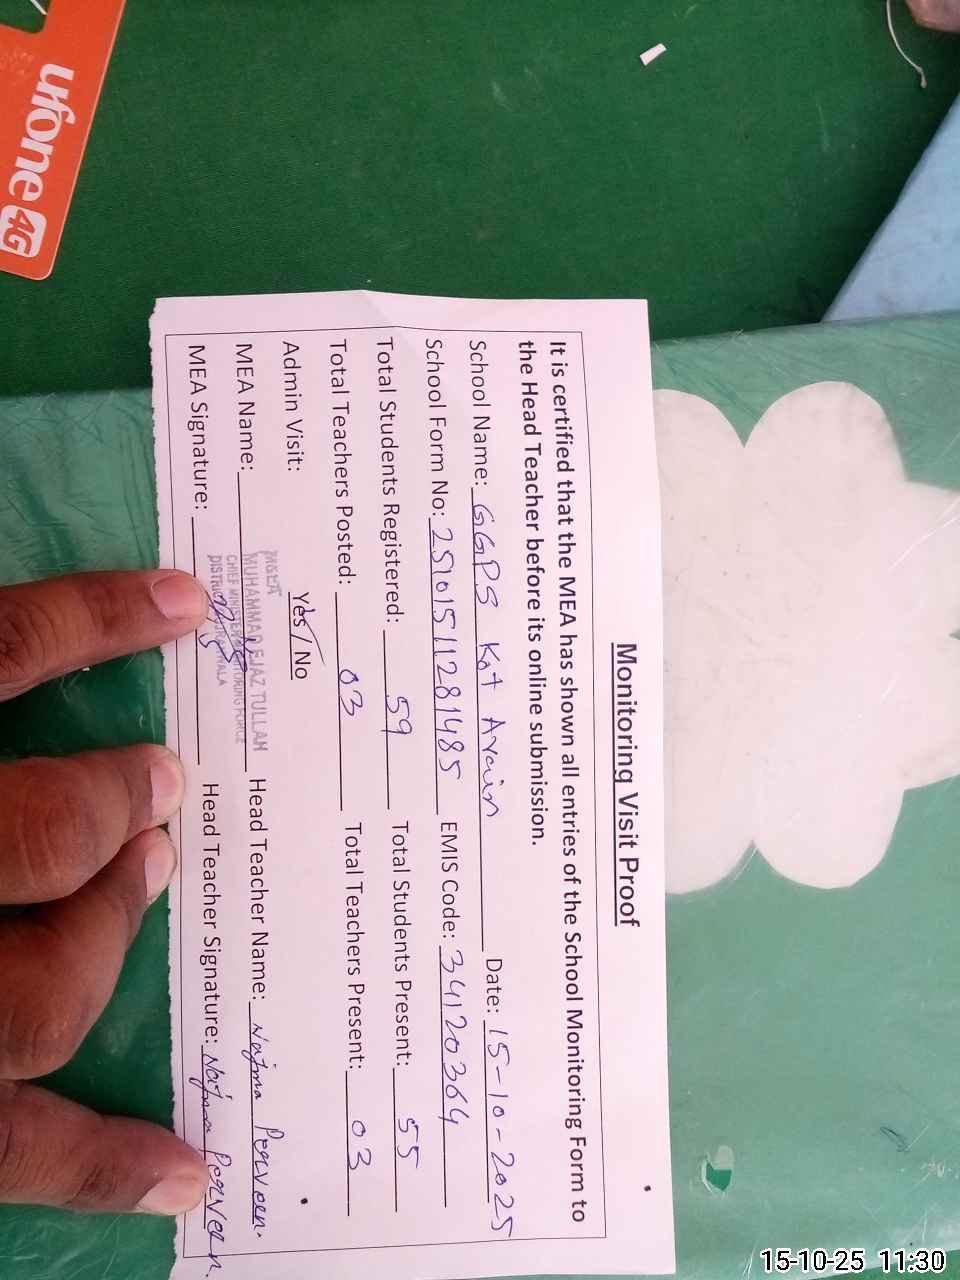 ufone 4G
Monitoring Visit Proof
It is certified that the MEA has shown all entries of the School Monitoring Form to
the Head Teacher before its online submission.
School Name: GGPS Kot Arain Date: 15-10-2025
School Form No: 25101511281485 EMIS Code: 34120364
Total Students Registered: 59 Total Students Present: 55
Total Teachers Posted: 03 Total Teachers Present: 03
Admin Visit: Yes / No
M&EA
MEA Name: MUHAMMAD EJAZ TULLAH Head Teacher Name: Najma Parveen.
CHIEF MINISTER MONITORING FORCE
MEA Signature: Head Teacher Signature: Najma Parveen.
15-10-25 11:30